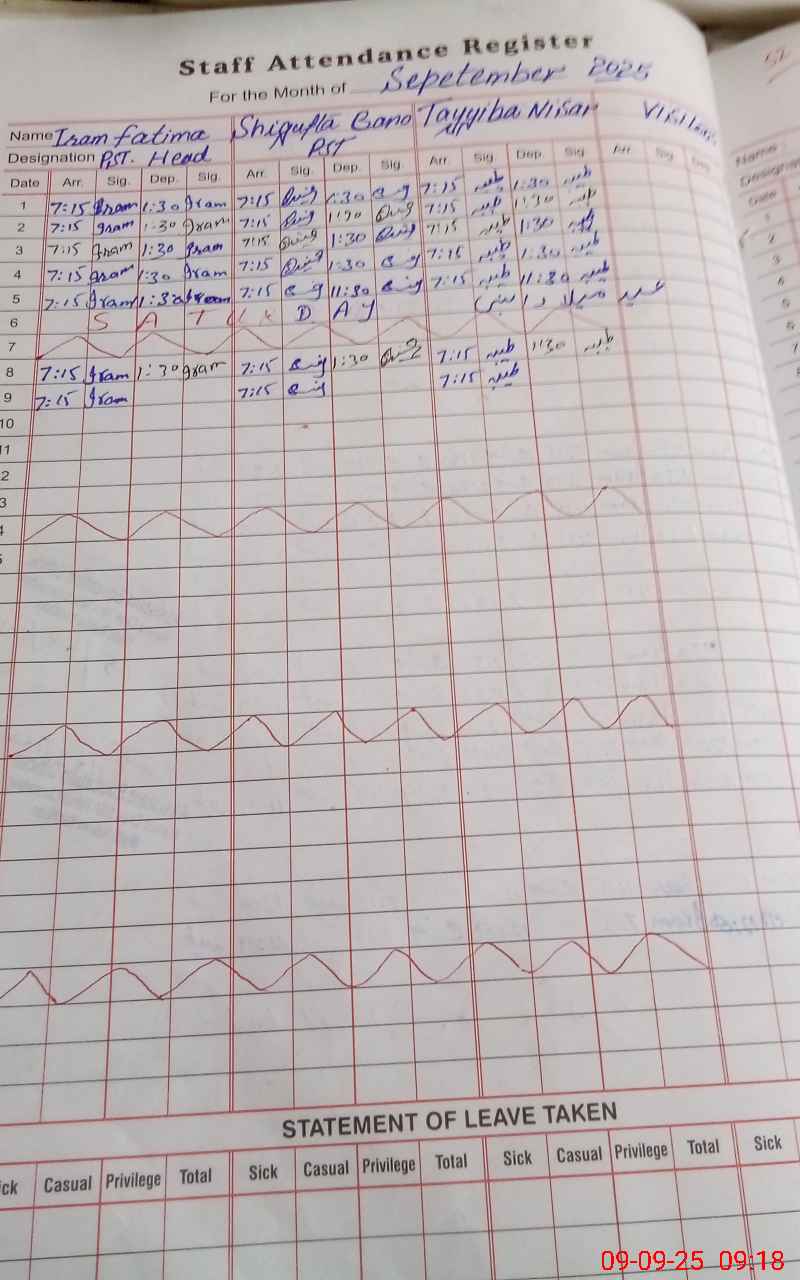 Staff Attendance Register
For the Month of Sepetember 2025
Name Iram fatima Shigufta Bano Tayyiba Nisar
Designation PST. Head PST
Date Arr. Sig. Dep. Sig. Arr. Sig. Dep. Sig. Arr. Sig Dep. Sig Arr Sig Dep
1 7:15 Iram 1:30 Iram 7:15 1:30 7:15 طیبہ 1:30 طیبہ
2 7:15 Iram 1:30 Iram 7:15 1:30 7:15 طیبہ 1:30 طیبہ
3 7:15 Iram 1:30 Iram 7:15 1:30 7:15 طیبہ 1:30 طیبہ
4 7:15 Iram 1:30 Iram 7:15 1:30 7:15 طیبہ 1:30 طیبہ
5 7:15 Iram 1:30 Iram 7:15 11:30 7:15 طیبہ 11:30 طیبہ
6 S A T U R D A Y عید میلاد النبی
7
8 7:15 Iram 1:30 Iram 7:15 1:30 7:15 طیبہ 1:30 طیبہ
9 7:15 Iram 7:15 7:15 طیبہ
10
11
2
3
4
STATEMENT OF LEAVE TAKEN
ick Casual Privilege Total Sick Casual Privilege Total Sick Casual Privilege Total Sick
09-09-25 09:18